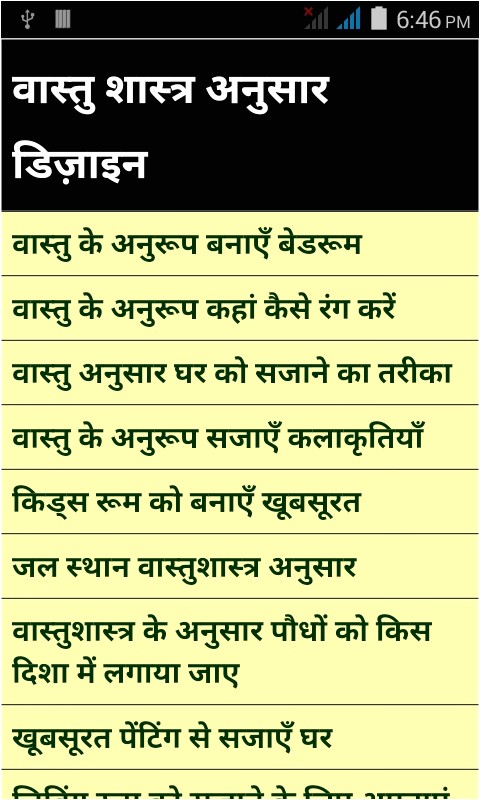 6:46 PM
वास्तु शास्त्र अनुसार
डिज़ाइन
वास्तु के अनुरूप बनाएँ बेडरूम
वास्तु के अनुरूप कहां कैसे रंग करें
वास्तु अनुसार घर को सजाने का तरीका
वास्तु के अनुरूप सजाएँ कलाकृतियाँ
किड्स रूम को बनाएँ खूबसूरत
जल स्थान वास्तुशास्त्र अनुसार
वास्तुशास्त्र के अनुसार पौधों को किस
दिशा में लगाया जाए
खूबसूरत पेंटिंग से सजाएँ घर